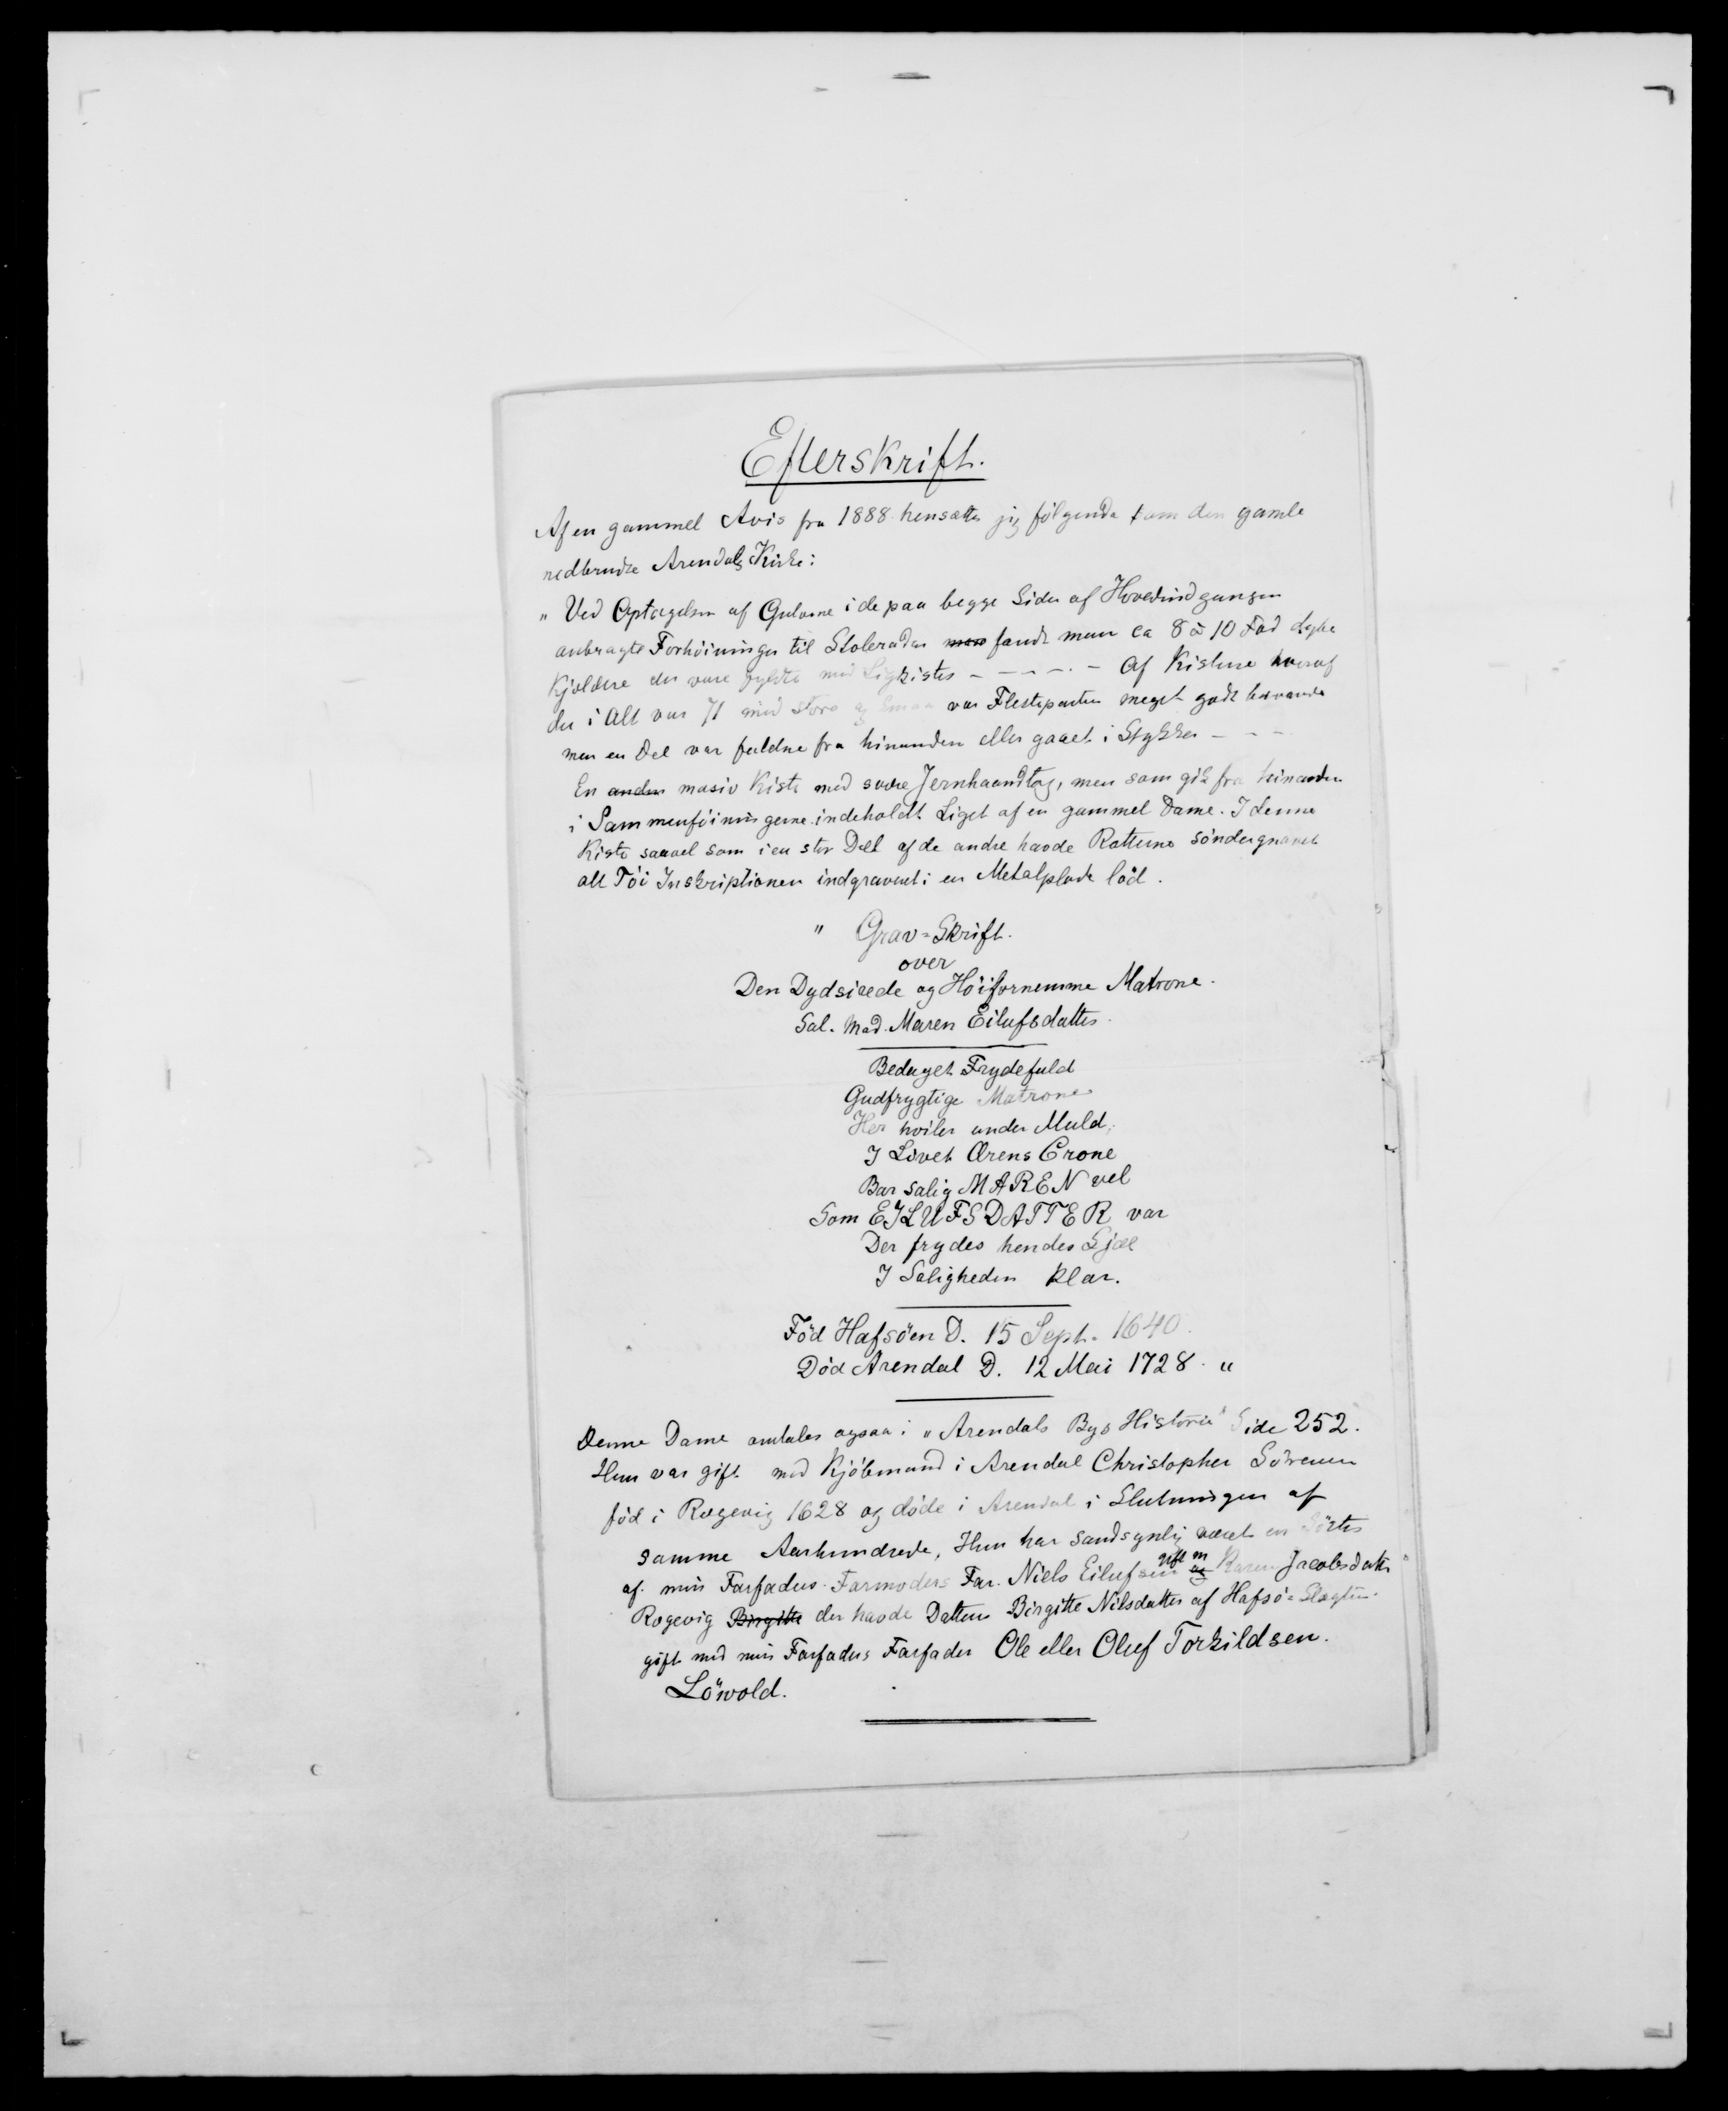 Efterskrift.
Af en gammel Avis fra 1888 hensættes jeg følgende om den gamle
nedbrudte Arendals Kirke:
"Ved Optagelsen af Gulvene i de paa begge Sider af Hovedindgangen
anbragte Forhöininger til Stolerader man fandt man ca 8 à 10 Fod dybe
Kjældere der vare fyldte med Ligkister - - - - - Af Kisterne hvoraf
der i Alt var 71 små store og Smaa var Flesteparten meget godt bevarede
men en Del var faldne fra hinanden eller gaaet i Stykker - - -
En anden masiv Kiste med svære Jernhaandtag, men som gik fra hinanden
i Sammenföiningerne indeholdt Liget af en gammel Dame. I denne
Kiste saavel som i en stor Del af de andre havde Rotterne söndergnavet
alt Töi Inskriptionen indgravet i en Metalplade löd.
" Grav-Skrift.
over
Den Dydsirede og Höifornemme Matrone.
Sal. Mad. Maren Eilufsdatter.
Bedaget Frydefuld
Gudfrygtige Matrone
Her hviler under Muld,
I Livet Ærens Crone
Bar salig MAREN vel
Som EJLUFSDATTER var
Der frydes hendes Sjæl
I Saligheden klar.
Född Hafsöen D. 15 Sept. 1640.
Död Arendal D. 12 Mai 1728. "
Denne Dame omtales ogsaa i "Arendals Bys Historie" Side 252.
Hun var gift med Kjöbmand i Arendal Christopher Sörensen
föd i Rægevig 1628 og döde i Arendal i Slutningen af
samme Aarhundrede, Hun har sandsynlig været en Söster
af min Farfaders Farmoders Far. Niels Eilufsen gift m og Karen Jacobsdatter
Rogevig Birgitte der havde Datteren Birgitte Nilsdatter af Hafsö-Slægten.
gift med min Farfaders Farfader Ole eller Oluf Torkildsen.
Lövold.